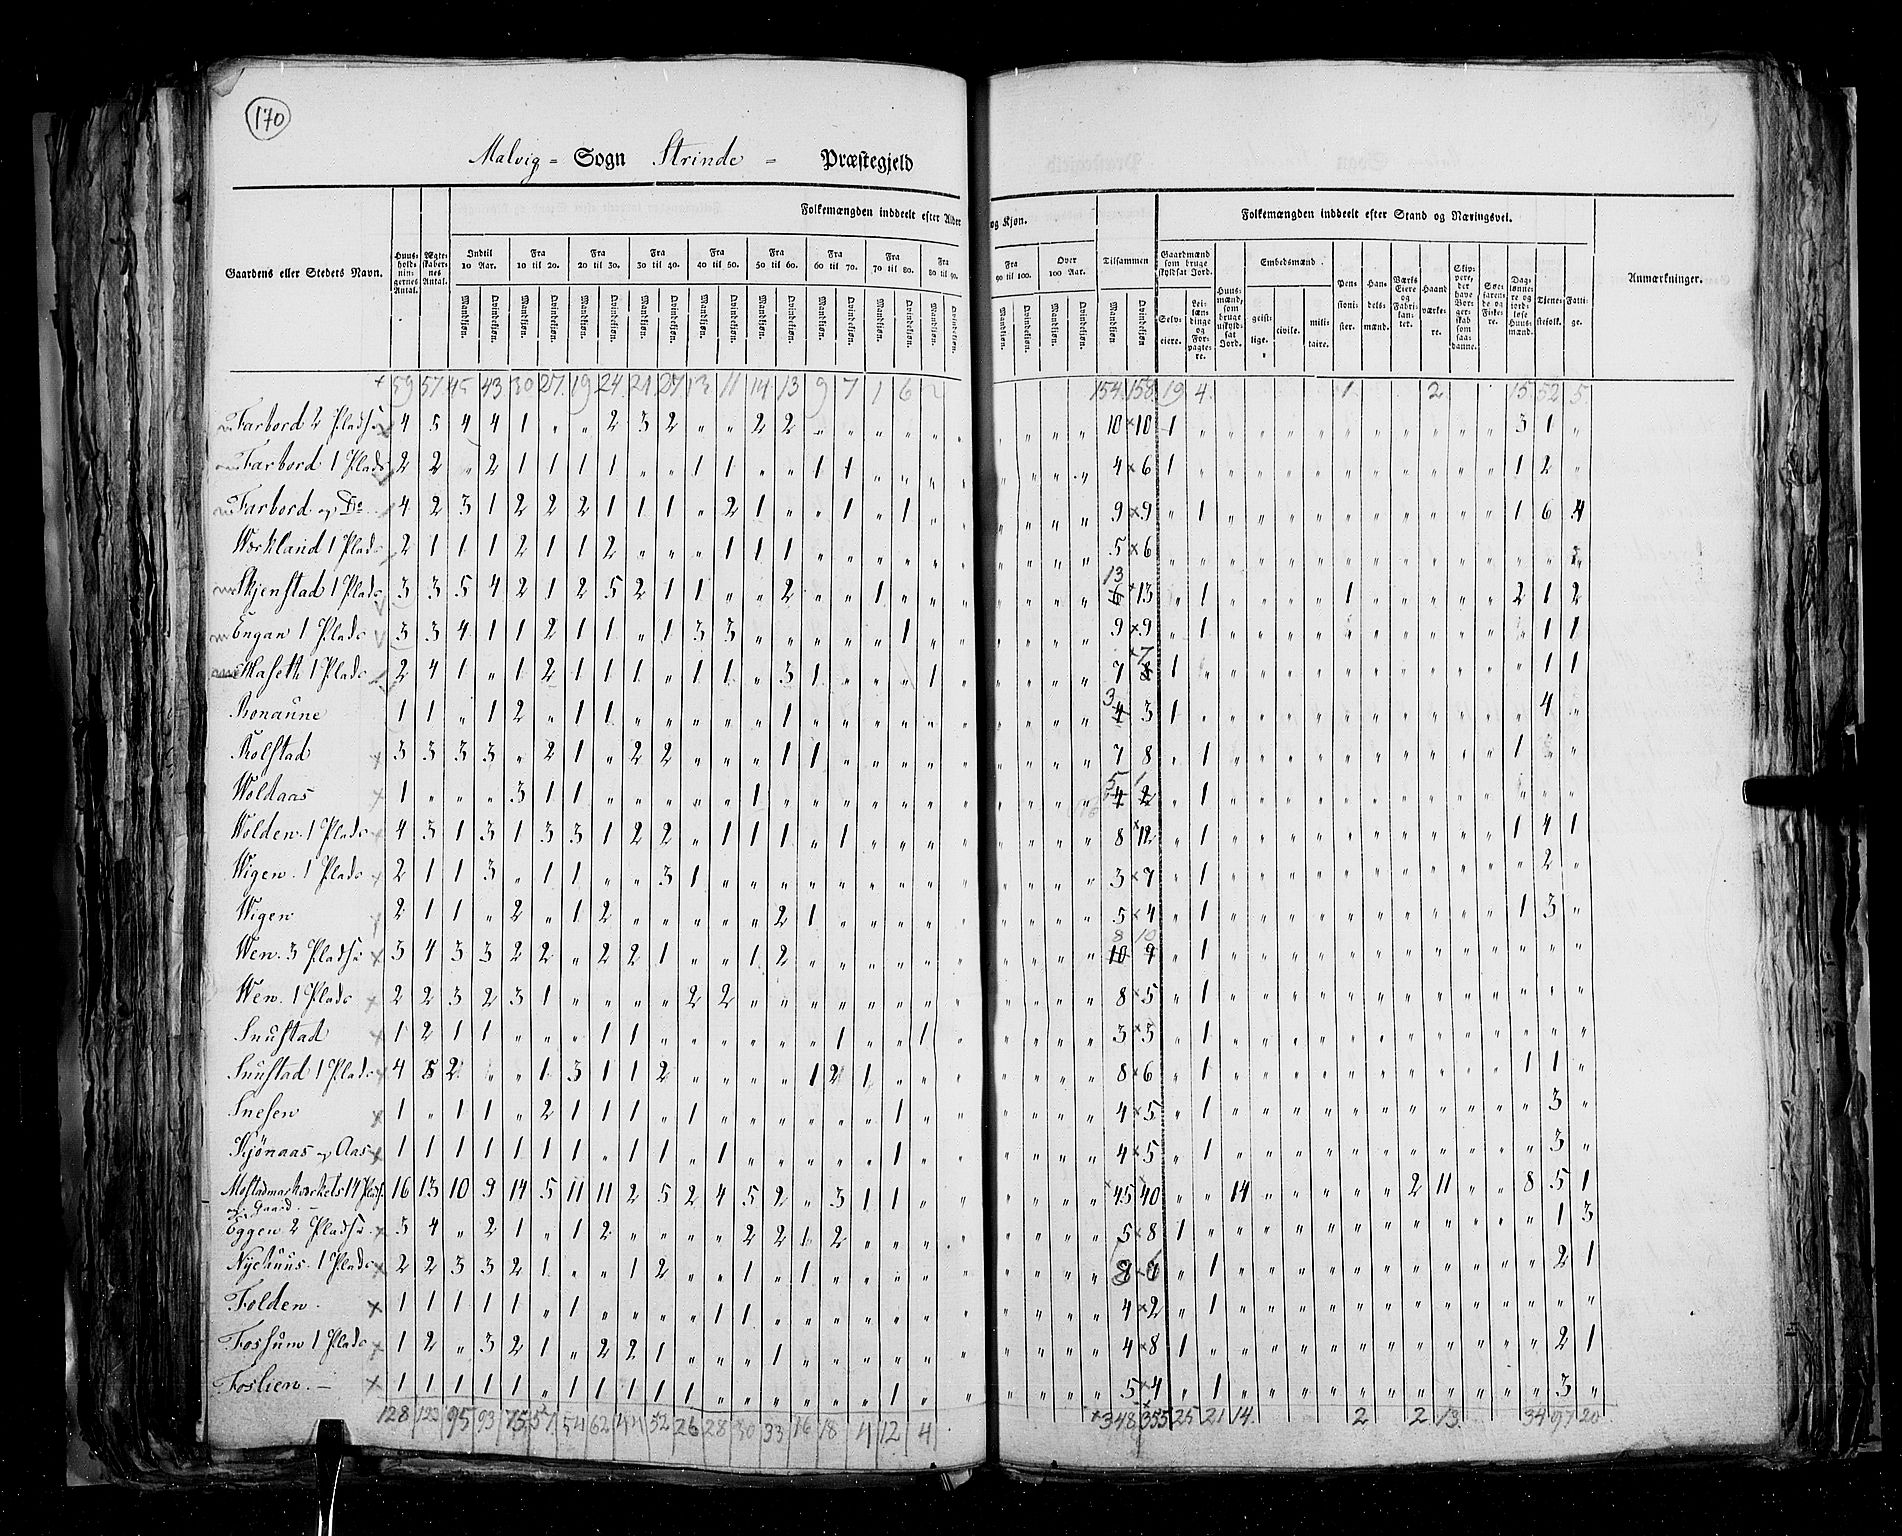 170
Malvig - Sogn Strinde - Præstegjeld
Gaardens eller Stedets Navn.
Huus-hold-nin-gernes Antal.
Ægte-skaber-nes Antal.
Folkemængden inddeelt efter Alder og Kjøn.
Indtil 10 Aar. Fra 10 til 20. Fra 20 til 30. Fra 30 til 40. Fra 40 til 50. Fra 50 til 60. Fra 60 til 70. Fra 70 til 80. Fra 80 til 90. Fra 90 til 100. Over 100 Aar. Tilsammen
Mandkjøn. Qvindekjøn.
Folkemængden inddeelt efter Stand og Næringsvei.
Gaardmænd som bruge skyldsat Jord.
Selv-eiere. Lei-læn-dinge og For-pagte-re.
Huus-mænd, som bruge uskyld-sat Jord.
Embedsmænd.
geist-lige. civile. mili-taire.
Pen-sioni-ster.
Han-dels-mænd.
Værks Eiere og Fabri-kan-ter.
Haand værke-re.
Skip-pere, der have Bor-ger-skab som saa-danne.
Søe-farende og Fiske-re.
Dag-lønne-re og jord-løse Huus-mænd.
Tjene-stefolk.
Fatti-ge.
Anmærkninger.
+ 59 57 45 43 30 27 19 24 21 27 13 11 14 13 9 7 1 6 2 154 158 19 4 1 2 15 52 5
Farbord 2 Pladse 4 5 4 4 1 " " 2 3 2 " " 2 2 " " " " " " " " " " 10 × 10 1 " " " " " " " " " " " 3 1 "
Farbord 1 Plads 2 2 " 2 1 1 1 1 " " 1 1 " " 1 1 " " " " " " " " 4 × 6 1 " " " " " " " " " " " 1 2 "
Farbord og Do 4 2 3 1 2 2 2 1 1 1 " 2 1 " " 1 " 1 " " " " " " 9 × 9 " 1 " " " " " " " " " " 1 6 4
Workland 1 Plads 2 1 1 1 2 1 1 2 " " " 1 1 1 " " " " " " " " " " 5 × 6
Skjenstad 1 Plads 3 3 5 4 2 1 2 5 2 1 1 " " 2 " " 1 " " " " " " " 13 6 × 13 " 1 " " " " 1 " " " " " 2 1 2
Engan 1 Plads 3 3 4 1 1 2 1 1 " 1 3 3 " " " " " 1 " " " " " " 9 × 9 " 1 " " " " " " " " " " " 1 1
Maseth 1 Plads 2 4 1 " 1 2 1 1 1 " 1 1 " 3 1 " " " 1 " " " " " 7 8 7 1 " " " " " " " " " " " " 1 1
Ronaune 1 1 " 1 2 " 1 1 " " " " " 1 " " " " " " " " " " 3 4 3 1 " " " " " " " " " " " " 4 "
Rolstad 3 3 3 3 " 2 1 " 2 2 " " " 1 1 " " " " " " " " " 7 8 " 1 " " " " " " " " " " 1 " "
Woldaas 1 " " " 3 1 1 " " " " " 1 " " " " " " " " " " " 5 4 1 2 " 1 " " " " " " " " " " " " "
Wolden. 1 Plads 4 3 1 3 1 3 3 1 2 2 " 1 1 1 " 1 " " " " " " " " 8 × 12 " 1 " " " " " " " " " " 1 4 1
Wigen. 1 Plads 2 1 1 3 " 1 1 " " 3 1 " " " " " " " " " " " " " 3 × 7 " 1 " " " " " " " " " " " 2 "
Wigen 2 1 1 " 2 " 1 2 " " " " " 2 1 " " " " " " " " " 5 × 4 " 1 " " " " " " " " " " 1 3 "
Wen. 3 Pladse 3 4 3 3 2 2 " 2 2 1 " " 1 2 " " " " " " " " " " 8 10 10 9 " 1 " " " " " " " " " " " " "
Wen. 1 Plads 2 2 3 2 3 1 " " " " 2 2 " " " " " " " " " " " " 8 × 5 " 1 " " " " " " " " " " " " "
Snustad 1 2 1 1 " " " 1 1 " " " " " " 1 " " 1 " " " " " 3 × 5 " 1 " " " " " " " " " " " " "
Snustad 1 Plads 4 5 2 " " 1 3 1 1 2 " " " " 1 2 1 " " " " " " " 8 × 6 " 1 " " " " " " " " " " 1 1 "
Snesen 1 " 1 1 " 2 1 1 1 " 1 " " " " " " 1 " " " " " " 4 × 5 " 1 " " " " " " " " " " " 3 "
Kjønaas og Aas 1 1 1 1 1 1 1 " 1 1 " 1 " " " " " 1 " " " " " " 4 × 5 " 1 " " " " " " " " " " " 3 "
Mostadmarkværkets 14 Pladse og Gaard. 16 13 10 9 14 5 11 11 2 5 2 4 5 2 " 3 1 1 " " " " " " 45 40 " " 14 " " " " " 2 11 " " 8 5 1
Eggen 2 Pladse 3 4 " 2 1 " 1 2 " " " " 2 2 1 2 " " " " " " " " 5 × 8 1 " " " " " " " " " " " " 1 3
Nyehuus. 1 Plads 2 2 3 3 2 1 " " 1 2 " " 1 " 1 " " " " " " " " " 8 × 6 " 1 " " " " " " " " " " " 2 1
Folden. 1 1 1 1 1 " 1 " " " " 1 1 " " " " " " " " " " " 4 × 2 " 1 " " " " " " " " " " " " "
Fossum 1 Plads 1 2 " 3 2 1 " 2 2 1 " " " 1 " " " " " " " " " " 4 × 8 1 " " " " " " " " " " " " 2 1
Foslien. 1 1 1 1 1 " 1 1 1 1 1 " " " " " " 1 " " " " " " 5 × 4 " 1 " " " " " " " " " " " 3 "
128 123 95 93 75 57 54 62 44 52 26 28 30 33 16 18 4 12 4 348 355 25 21 14 2 2 13 34 97 20